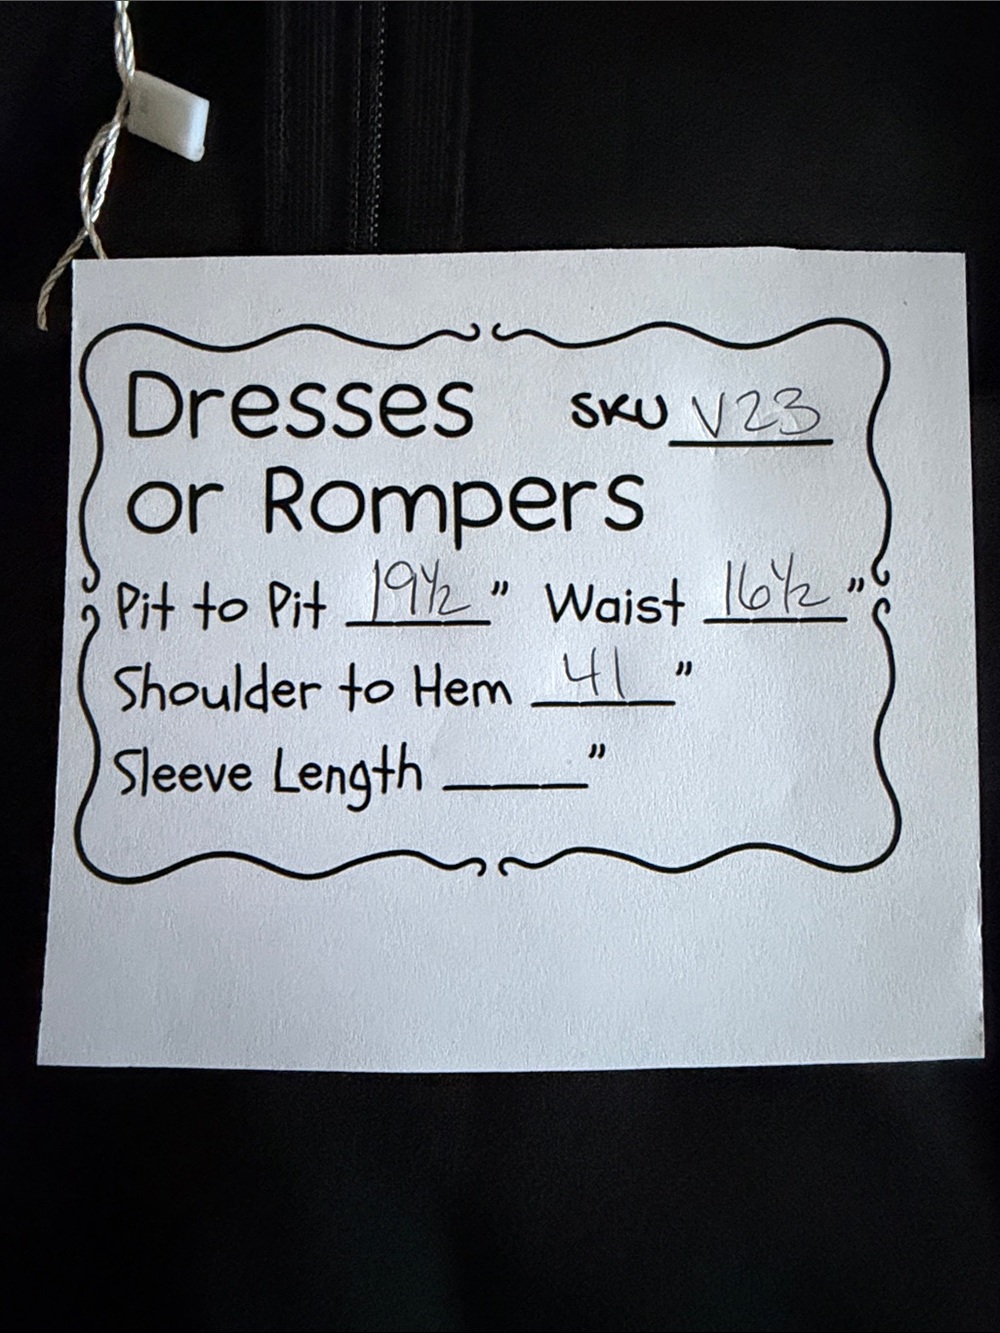 Dresses SKU V23
or Rompers
Pit to Pit 19½" Waist 16½"
Shoulder to Hem 41"
Sleeve Length ______"